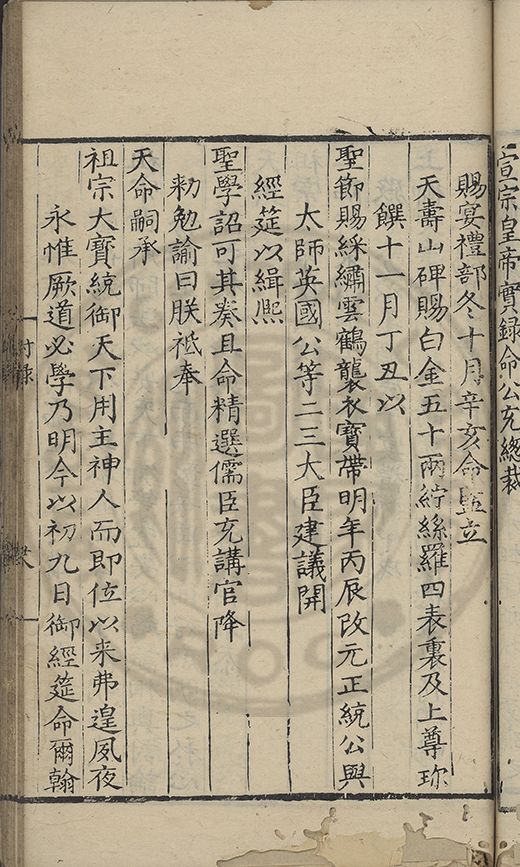 宣宗皇帝實録命公充緫裁
賜宴禮部冬十月辛亥命監立
天壽山碑賜白金五十兩紵絲羅四表裏及上尊珎
饌十一月丁丑以
聖節賜綵繡雲鶴襲衣寳帶明年丙辰改元正統公與
太師英國公等二三大臣建議開
經筵以緝熈
聖學詔可其奏且命精選儒臣充講官降
勑勉諭曰朕祗奉
天命嗣承
祖宗大寳統御天下用主神人而即位以来弗遑夙夜
永惟厥道必學乃明今以初九日御經筵命爾翰
付録